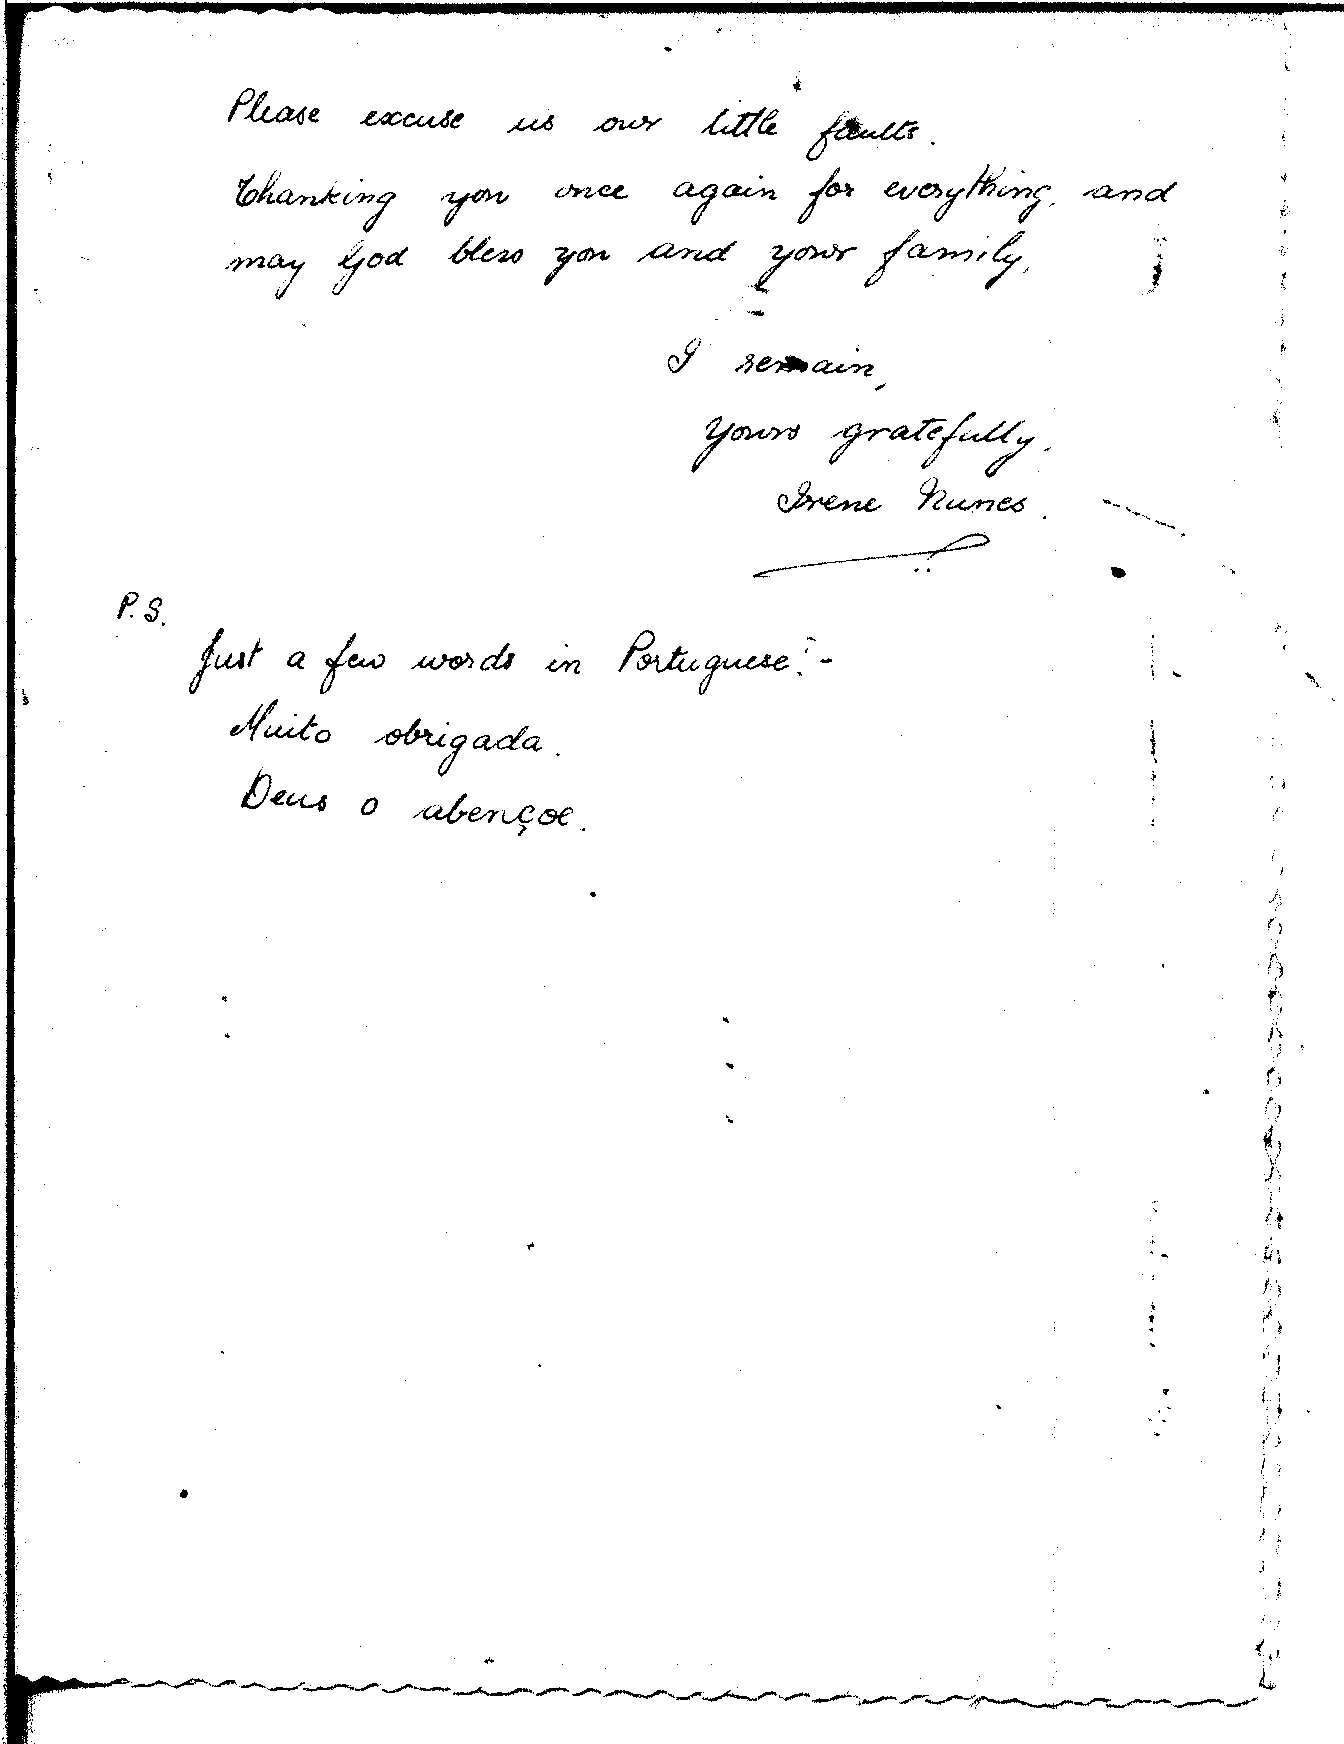 Please excuse us our little faults.
Thanking you once again for everything, and
may God bless you and your family,
I remain,
yours gratefully,
Irene Nunes.
P.S.
Just a few words in Portuguese:-
Muito obrigada.
Deus o abençoe.